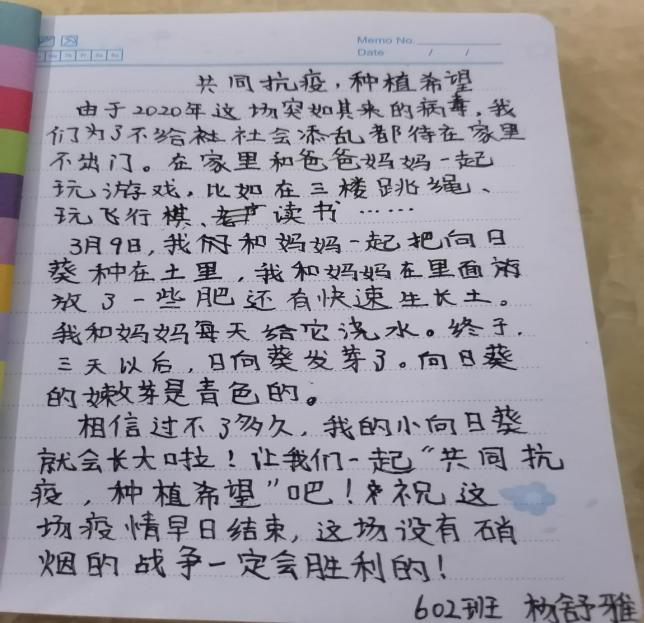 Memo No.
Date / /
共同抗疫，种植希望
由于2020年这场突如其来的病毒，我
们为了不给社会添乱都待在家里
不出门。在家里和爸爸妈妈一起
玩游戏，比如在三楼跳绳、
玩飞行棋、读书……
3月9日，我和妈妈一起把向日
葵种在土里，我和妈妈在里面
放了一些肥还有快速生长土。
我和妈妈每天给它浇水。终于，
三天以后，日向葵发芽了。向日葵
的嫩芽是青色的。
相信过不了多久，我的小向日葵
就会长大啦！让我们一起“共同抗
疫，种植希望”吧！祝这
场疫情早日结束，这场没有硝
烟的战争一定会胜利的！
602班 杨舒雅